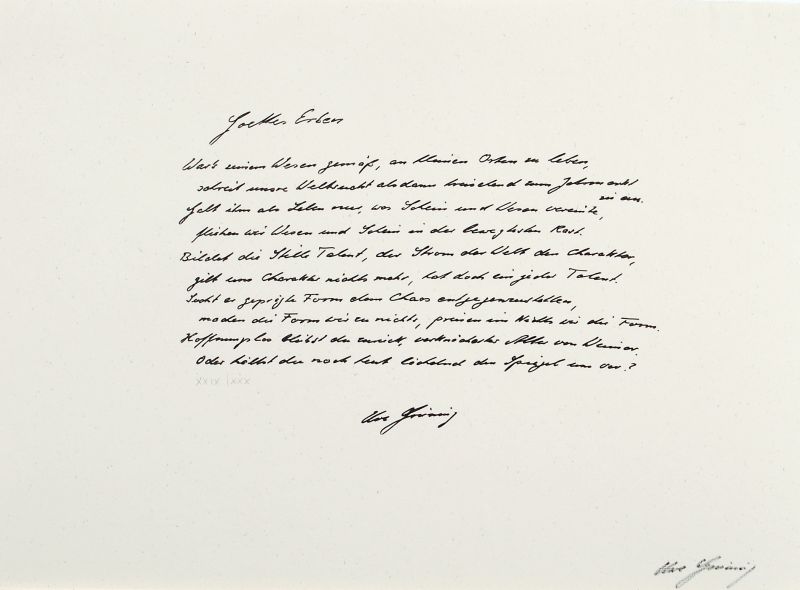 Goethes Erben
War's seinem Wesen gemäß, an kleinen Orten zu leben,
schreit unsre Weltsucht alsdann kreischend zum Jahrmarkt
zu an.
Galt ihm als Leben nur, was Schein und Wesen vereinte,
fliehen wir Wesen und Schein in der beweglosten Rast.
Bildet die Stille Talent, der Strom der Welt den Charakter,
gilt uns Charakter nichts mehr, hat doch ein jeder Talent.
Sucht er geprägte Form dem Chaos entgegenzustellen,
machen die Form wir zu nichts, preisen ein Nichts wir die Form.
Hoffnungslos bleibst du zurück, verknöcherter Alter von Weimar.
Oder hältst du noch heut lächelnd den Spiegel uns vor?
XXIX/XXX
Uwe Grüning
Uwe Grüning